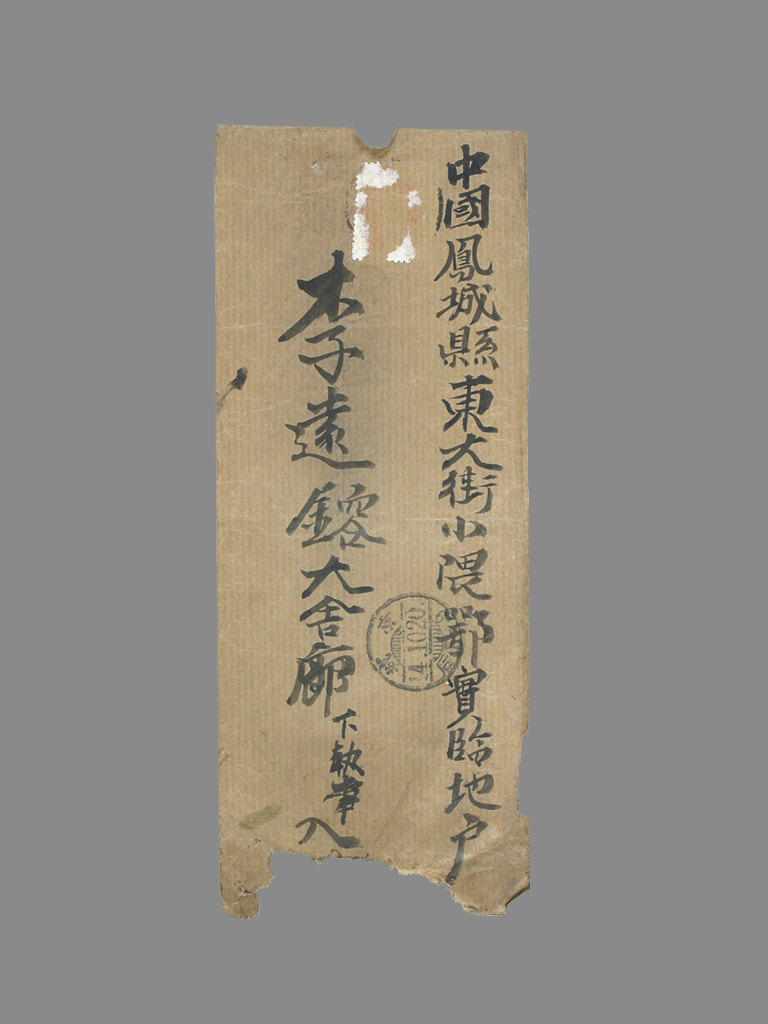 中國鳳城縣東大街小隈鄂實臨地户
李子遠鎔大舍廊下執事入
4.10.20